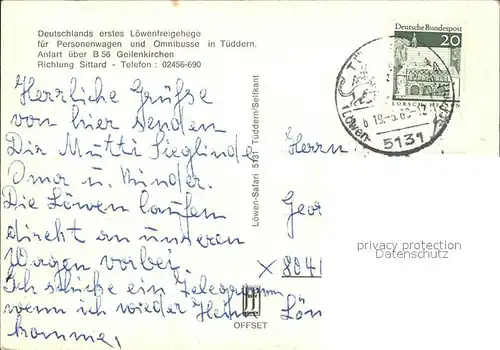 Deutschlands erstes Löwenfreigehege
für Personenwagen und Omnibusse in Tüddern.
Anfart über B 56 Geilenkirchen
Richtung Sittard - Telefon : 02456-690
Herrliche Grüße
von hier senden
Dir Mutti Sieglinde
Omar u. Kinder.
Die Löwen laufen
direkt an unseren
Wagen vorbei.
Ich schicke ein Telegramm,
wenn ich wieder Heim
komme,
Löwen-Safari 5131 Tüddern/Selfkant
OFFSET
Deutsche Bundespost
20
LORSCH HESSEN
Löwen-
5131
Herrn
Geor
x 8041
Lön
privacy protection
Datenschutz